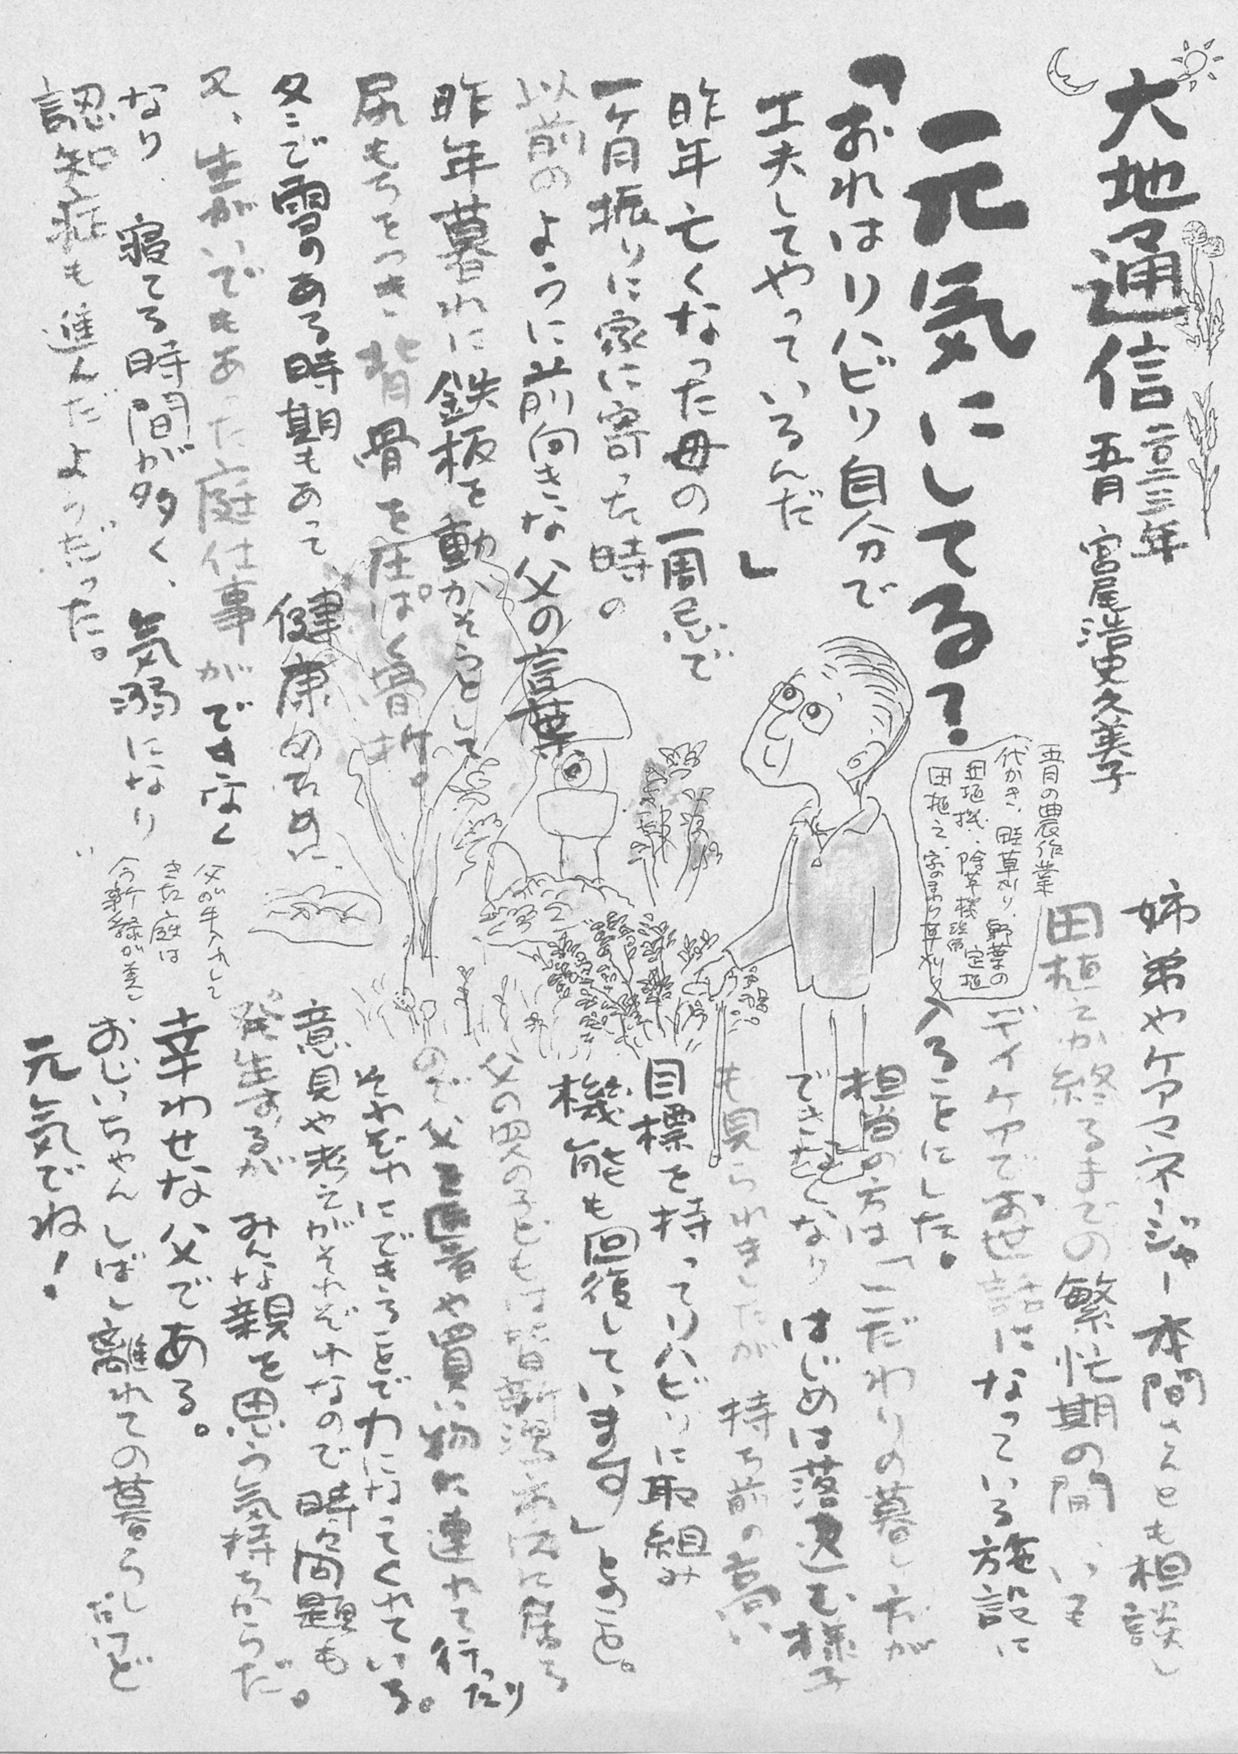 大地通信
二〇二三年
五月
宮尾浩史久美子
元気にしてる?
「おれはリハビリ自分で
工夫してやっているんだ」
昨年亡くなった母の一周忌で
一ヶ月振りに家に寄った時の
以前のように前向きな父の言葉
昨年暮れに鉄板を動かそうとして
尻もちをつき背骨を圧ぱく骨折。
冬で雪のある時期もあって健康のために、
又、生がいでもあった庭仕事ができなく
なり、寝てる時間が多く、気弱になり
認知症も進んだようだった。
五月の農作業
代かき、畦草刈り、野菜の定植
田植機、除草機
田植え、家のまわり草刈り
父が手入れして
きた庭は
今新緑が
姉弟やケアマネージャー本間さんとも相談し
田植えが終るまでの繁忙期の間、いも
デイケアでお世話になっている施設に
入ることにした。
担当の方は「こだわりの暮し方が
できなくなり はじめは落込む様子
も見られましたが 持ち前の高い
目標を持ってリハビリに取組み
機能も回復しています」とのこと。
父の男の子どもは皆新潟市内に居る
ので父を医者や買い物に連れて行ったり
それぞれにできることで力になってくれている。
意見や考えがそれぞれなので時々問題も
発生するが みんな親を思う気持ちからだ。
幸わせな父である。
おじいちゃんしばし離れての暮らしだけど
元気でね!